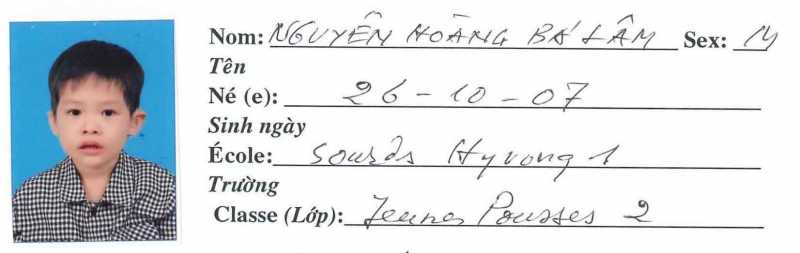 Nom: NGUYỄN HOÀNG BÁ LÂM Sex: M
Tên
Né (e): 26 - 10 - 07
Sinh ngày
École: Sourds Hyvong 1
Trường
Classe (Lớp): Jeunes Pousses 2